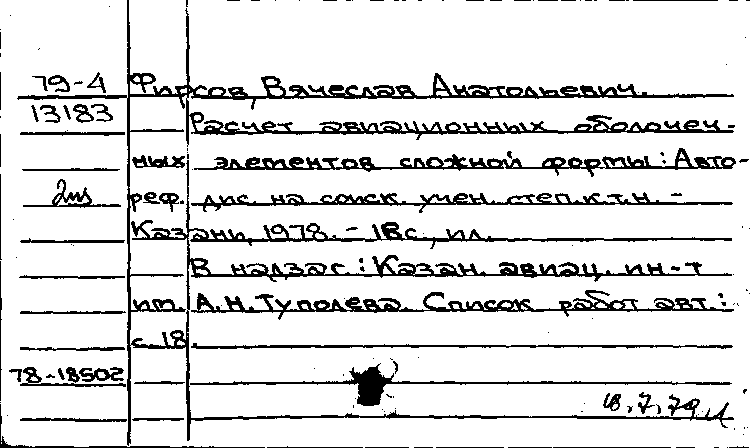 79-4 Фирсов, Вячеслав Анатольевич.
13183 Расчет авиационных оболочеч-
ных элементов сложной формы: Авто-
2 экз реф. дис. на соиск. учен. степ. к.т.н. -
Казани, 1978. - 18с., ил.
В надзаг.: Казан. авиац. ин-т
им. А.Н. Туполева. Список работ авт.:
с. 18.
78-18502
18.7.79